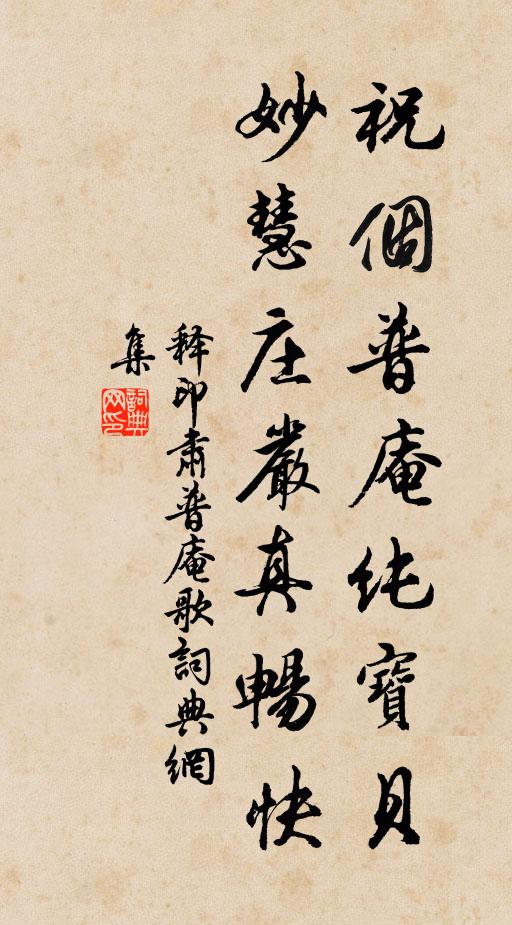 祝個普庵纯寶貝
妙慧庄嚴真暢快
释印肅普庵歌詞典網
集
詞典
网印